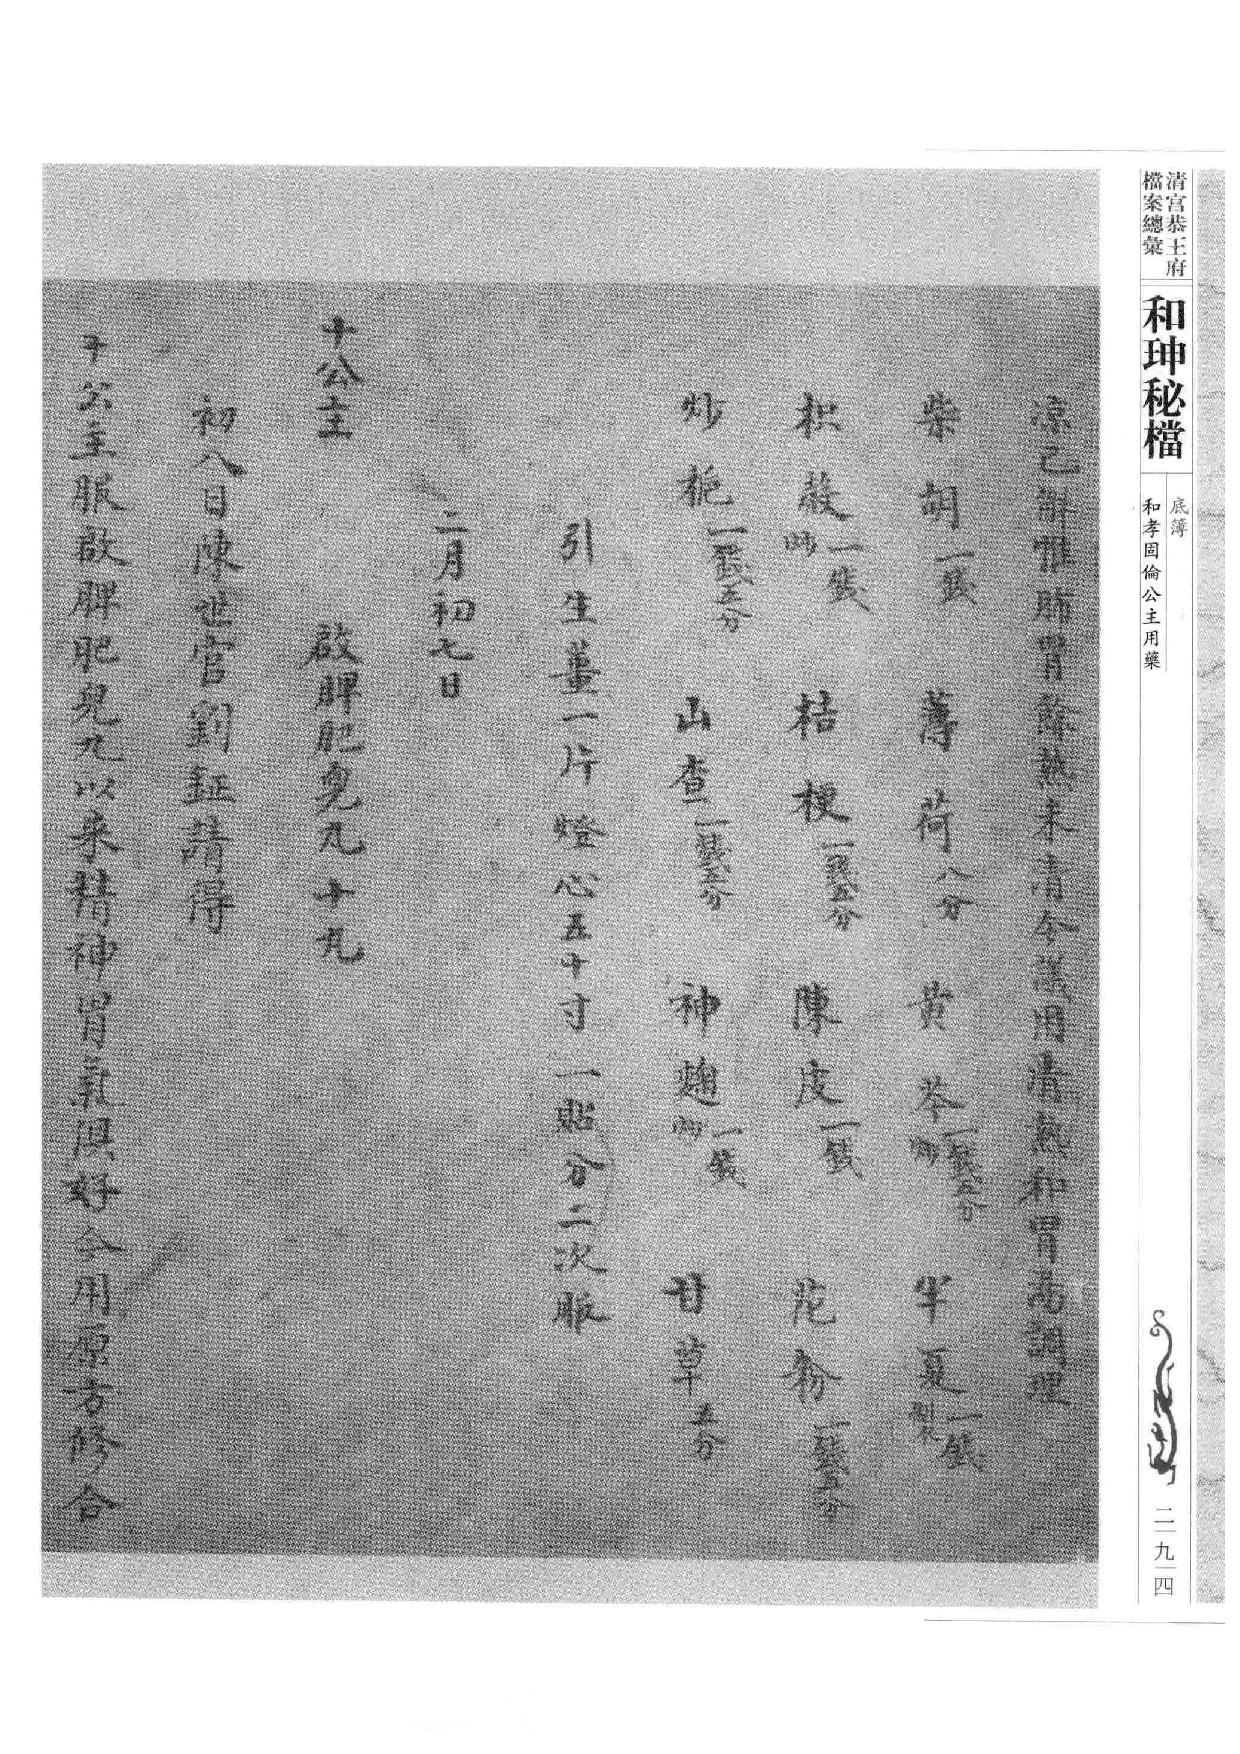 清宮恭王府
檔案總彙
和珅秘檔
底簿
和孝固倫公主用藥
二九四
涼已解惟肺胃餘熱未清今議用清熱和胃湯調理
柴胡一錢 薄荷八分 黃芩炒一錢五分 半夏製一錢
枳殼炒一錢 桔梗一錢五分 陳皮一錢 花粉一錢五分
炒梔一錢五分 山查一錢五分 神麯炒一錢 甘草五分
引生薑一片燈心五十寸一貼分二次服
二月初七日
十公主 啟脾肥兒丸十丸
初八日陳世官劉鉦請得
十公主服啟脾肥兒丸以來精神胃氣俱好今用原方修合